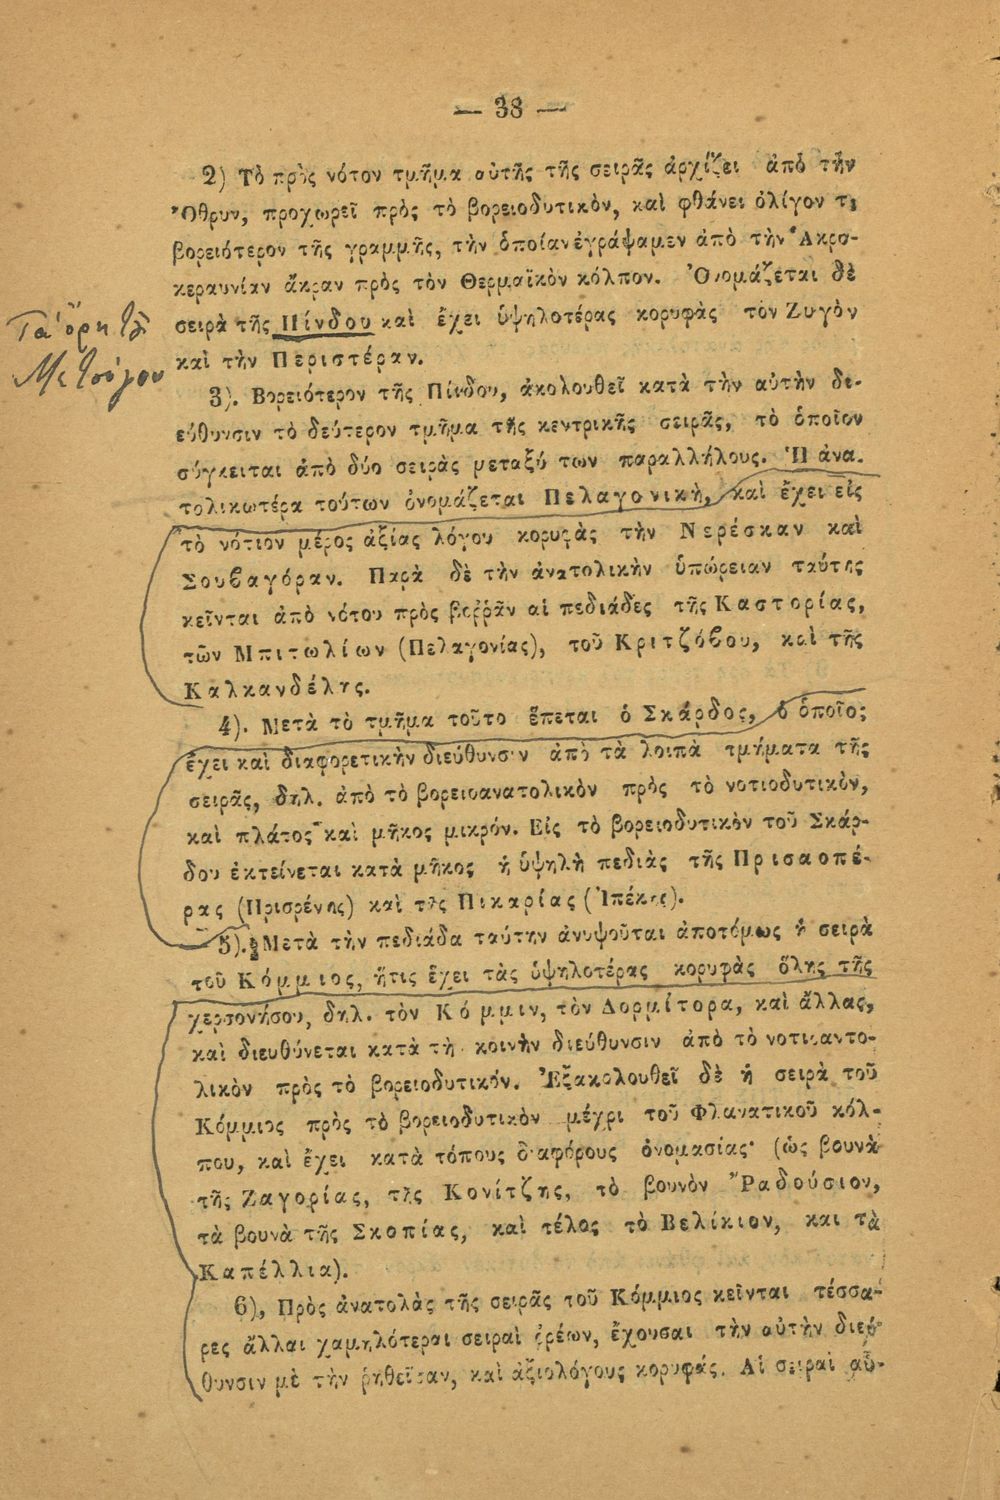 — 38 —
2) Τὸ πρὸς νότον τμῆμα αὐτῆς τῆς σειρᾶς ἀρχίζει ἀπὸ τὴν
Ὄθρυν, προχωρεῖ πρὸς τὸ βορειοδυτικὸν, καὶ φθάνει ὀλίγον τι
βορειότερον τῆς γραμμῆς, τὴν ὁποίαν ἐγράψαμεν ἀπὸ τὴν Ἀκρο-
κεραυνίαν ἄκραν πρὸς τὸν Θερμαϊκὸν κόλπον. Ὀνομάζεται δὲ
σειρὰ τῆς Πίνδου καὶ ἔχει ὑψηλοτέρας κορυφὰς τὸν Ζυγὸν
καὶ τὴν Περιστέραν.
Τὰ ὄρη τοῦ
Μετσόβου
3). Βορειότερον τῆς Πίνδου, ἀκολουθεῖ κατὰ τὴν αὐτὴν δι-
εύθυνσιν τὸ δεύτερον τμῆμα τῆς κεντρικῆς σειρᾶς, τὸ ὁποῖον
σύγκειται ἀπὸ δύο σειρὰς μεταξύ των παραλλήλους. Ἡ ἀνα-
τολικωτέρα τούτων ὀνομάζεται Πελαγονικὴ, καὶ ἔχει εἰς
τὸ νότιον μέρος ἀξίας λόγου κορυφὰς τὴν Νερέσκαν καὶ
Σουβαγόραν. Παρὰ δὲ τὴν ἀνατολικὴν ὑπώρειαν ταύτης
κεῖνται ἀπὸ νότου πρὸς βοῤῥᾶν αἱ πεδιάδες τῆς Καστορίας,
τῶν Μπιτωλίων (Πελαγονίας), τοῦ Κριτζόβου, καὶ τῆς
Καλκανδέλης.
4). Μετὰ τὸ τμῆμα τοῦτο ἕπεται ὁ Σκάρδος, ὁ ὁποῖος
ἔχει καὶ διαφορετικὴν διεύθυνσιν ἀπὸ τὰ λοιπὰ τμήματα τῆς
σειρᾶς, δηλ. ἀπὸ τὸ βορειοανατολικὸν πρὸς τὸ νοτιοδυτικὸν,
καὶ πλάτος καὶ μῆκος μικρόν. Εἰς τὸ βορειοδυτικὸν τοῦ Σκάρ-
δου ἐκτείνεται κατὰ μῆκος ἡ ὑψηλὴ πεδιὰς τῆς Πρισαοπέ-
ρας (Πρισρένης) καὶ τῆς Πικαρίας (Ἰπέκης).
5). Μετὰ τὴν πεδιάδα ταύτην ἀνυψοῦται ἀποτόμως ἡ σειρὰ
τοῦ Κόμμιος, ἥτις ἔχει τὰς ὑψηλοτέρας κορυφὰς ὅλης τῆς
χερσονήσου, δηλ. τὸν Κόμμιν, τὸν Δορμίτορα, καὶ ἄλλας,
καὶ διευθύνεται κατὰ τὴ κοινὴν διεύθυνσιν ἀπὸ τὸ νοτιοαντο-
λικὸν πρὸς τὸ βορειοδυτικόν. Ἐξακολουθεῖ δὲ ἡ σειρὰ τοῦ
Κόμμιος πρὸς τὸ βορειοδυτικὸν μέχρι τοῦ Φλανατικοῦ κόλ-
που, καὶ ἔχει κατὰ τόπους διαφόρους ὀνομασίας· (ὡς βουνὰ
τῆς Ζαγορίας, τῆς Κονίτζης, τὸ βουνὸν Ῥαδούσιον,
τὰ βουνὰ τῆς Σκοπίας, καὶ τέλος τὸ Βελίκιον, και τὰ
Καπέλλια).
6), Πρὸς ἀνατολὰς τῆς σειρᾶς τοῦ Κόμμιος κεῖνται τέσσα-
ρες ἄλλαι χαμηλότεραι σειραὶ ὀρέων, ἔχουσαι τὴν αὐτὴν διεύ-
θυνσιν μὲ τὴν ῥηθεῖσαν, καὶ ἀξιολόγους κορυφάς. Αἱ σειραὶ αὗ-